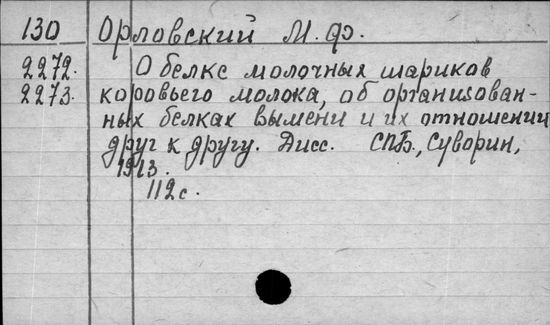 130 Орловский М. Ф.
2272. О белке молочных шариков
2273. коровьего молока, об организован-
ных белках вымени и их отношении
друг к другу. Дисс. СПБ., Суворин,
1913.
112с.